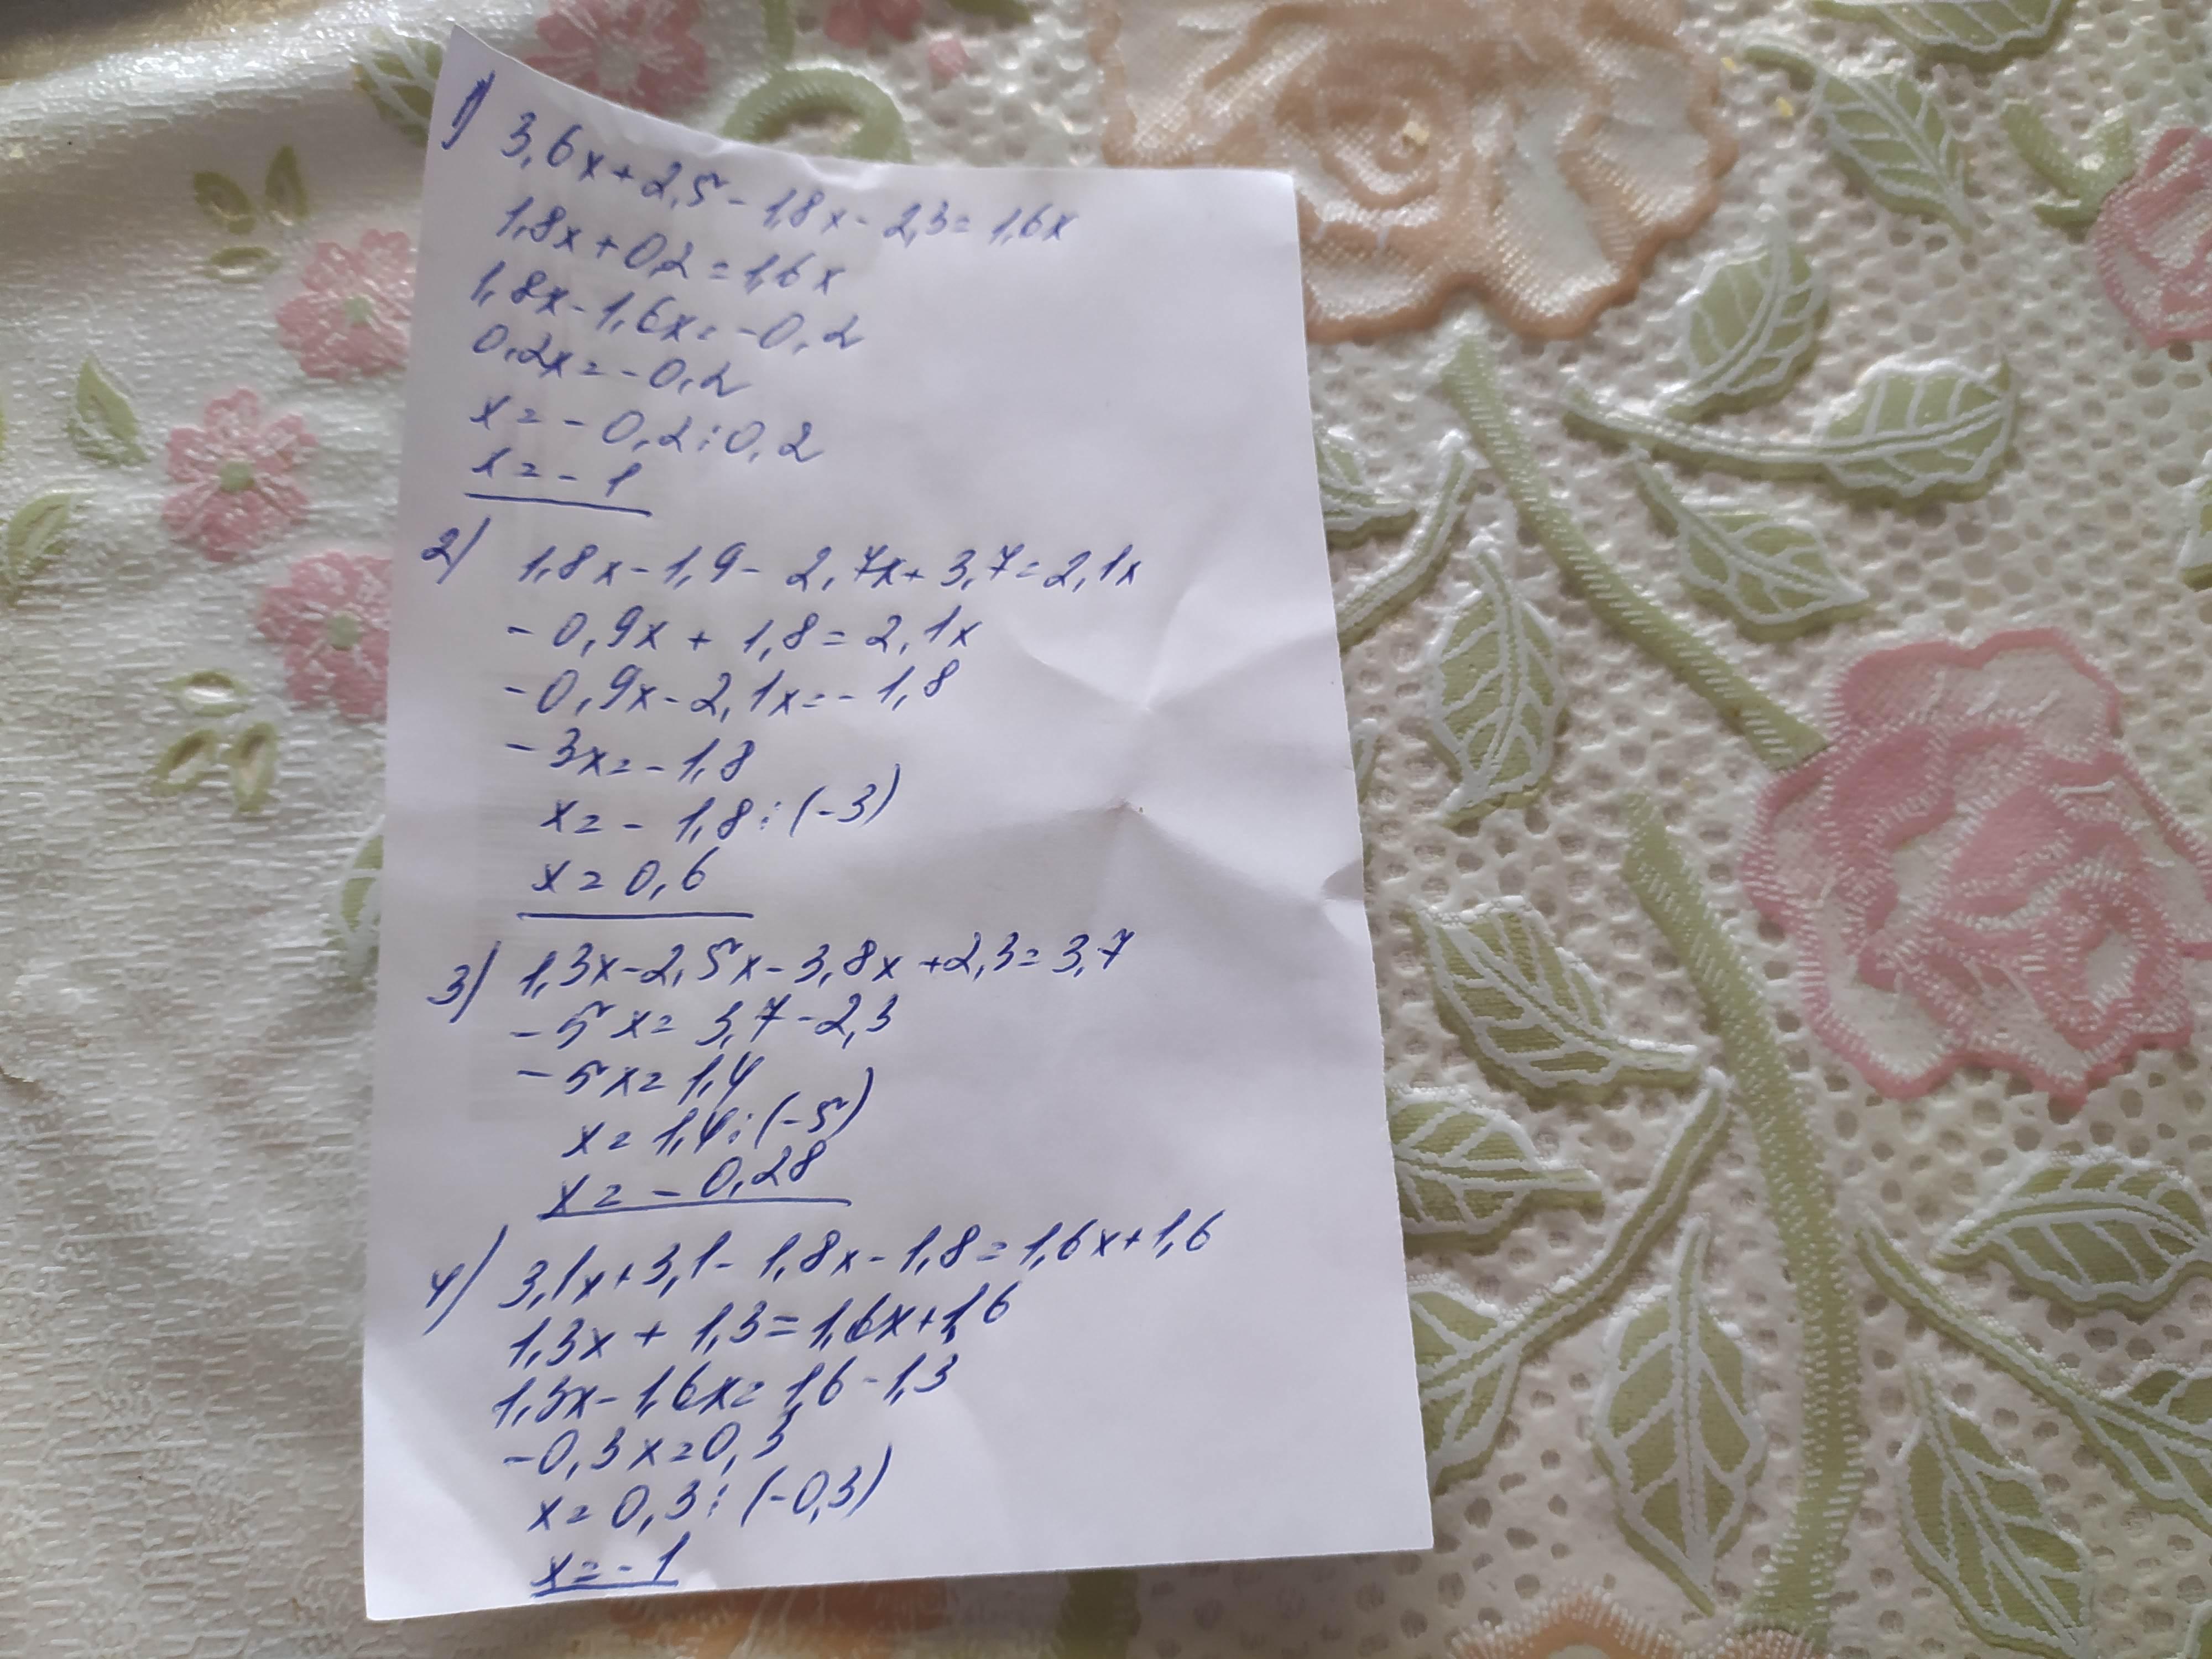 1) 3,6x+2,5-1,8x-2,3=1,6x
1,8x+0,2=1,6x
1,8x-1,6x=-0,2
0,2x=-0,2
x=-0,2:0,2
x=-1
2) 1,8x-1,9-2,7x+3,7=2,1x
-0,9x+1,8=2,1x
-0,9x-2,1x=-1,8
-3x=-1,8
x=-1,8:(-3)
x=0,6
3) 1,3x-2,5x-3,8x+2,3=3,7
-5x=3,7-2,3
-5x=1,4
x=1,4:(-5)
x=-0,28
4) 3,1x+3,1-1,8x-1,8=1,6x+1,6
1,3x+1,3=1,6x+1,6
1,3x-1,6x=1,6-1,3
-0,3x=0,3
x=0,3:(-0,3)
x=-1